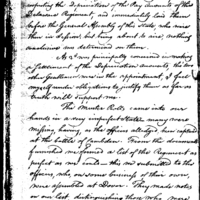 respecting the Depreciation of the Pay Accounts of this
Delaware Regiment, and immediately laid them
before the General Assembly of the State, who were
then in session, but being about to rise, nothing
conclusive was determined on them.
As I was principally concerned in making
a Settlement of the Depreciation accounts, the two
other Gentlemen was in the appointment, I feel
myself warm obligations to justify them as far as
truth will support me.
The Muster Rolls came into our
hands in a very imperfect state, many were
missing having, as the officers alledge been captured
at the battle of Camden. From the documents
furnished we formed a list of the Regiment as
perfect as we could — this we submitted to the
officers, who on some business of their own,
were assembled at Dover. They made notes
on our list, distinguishing those who were